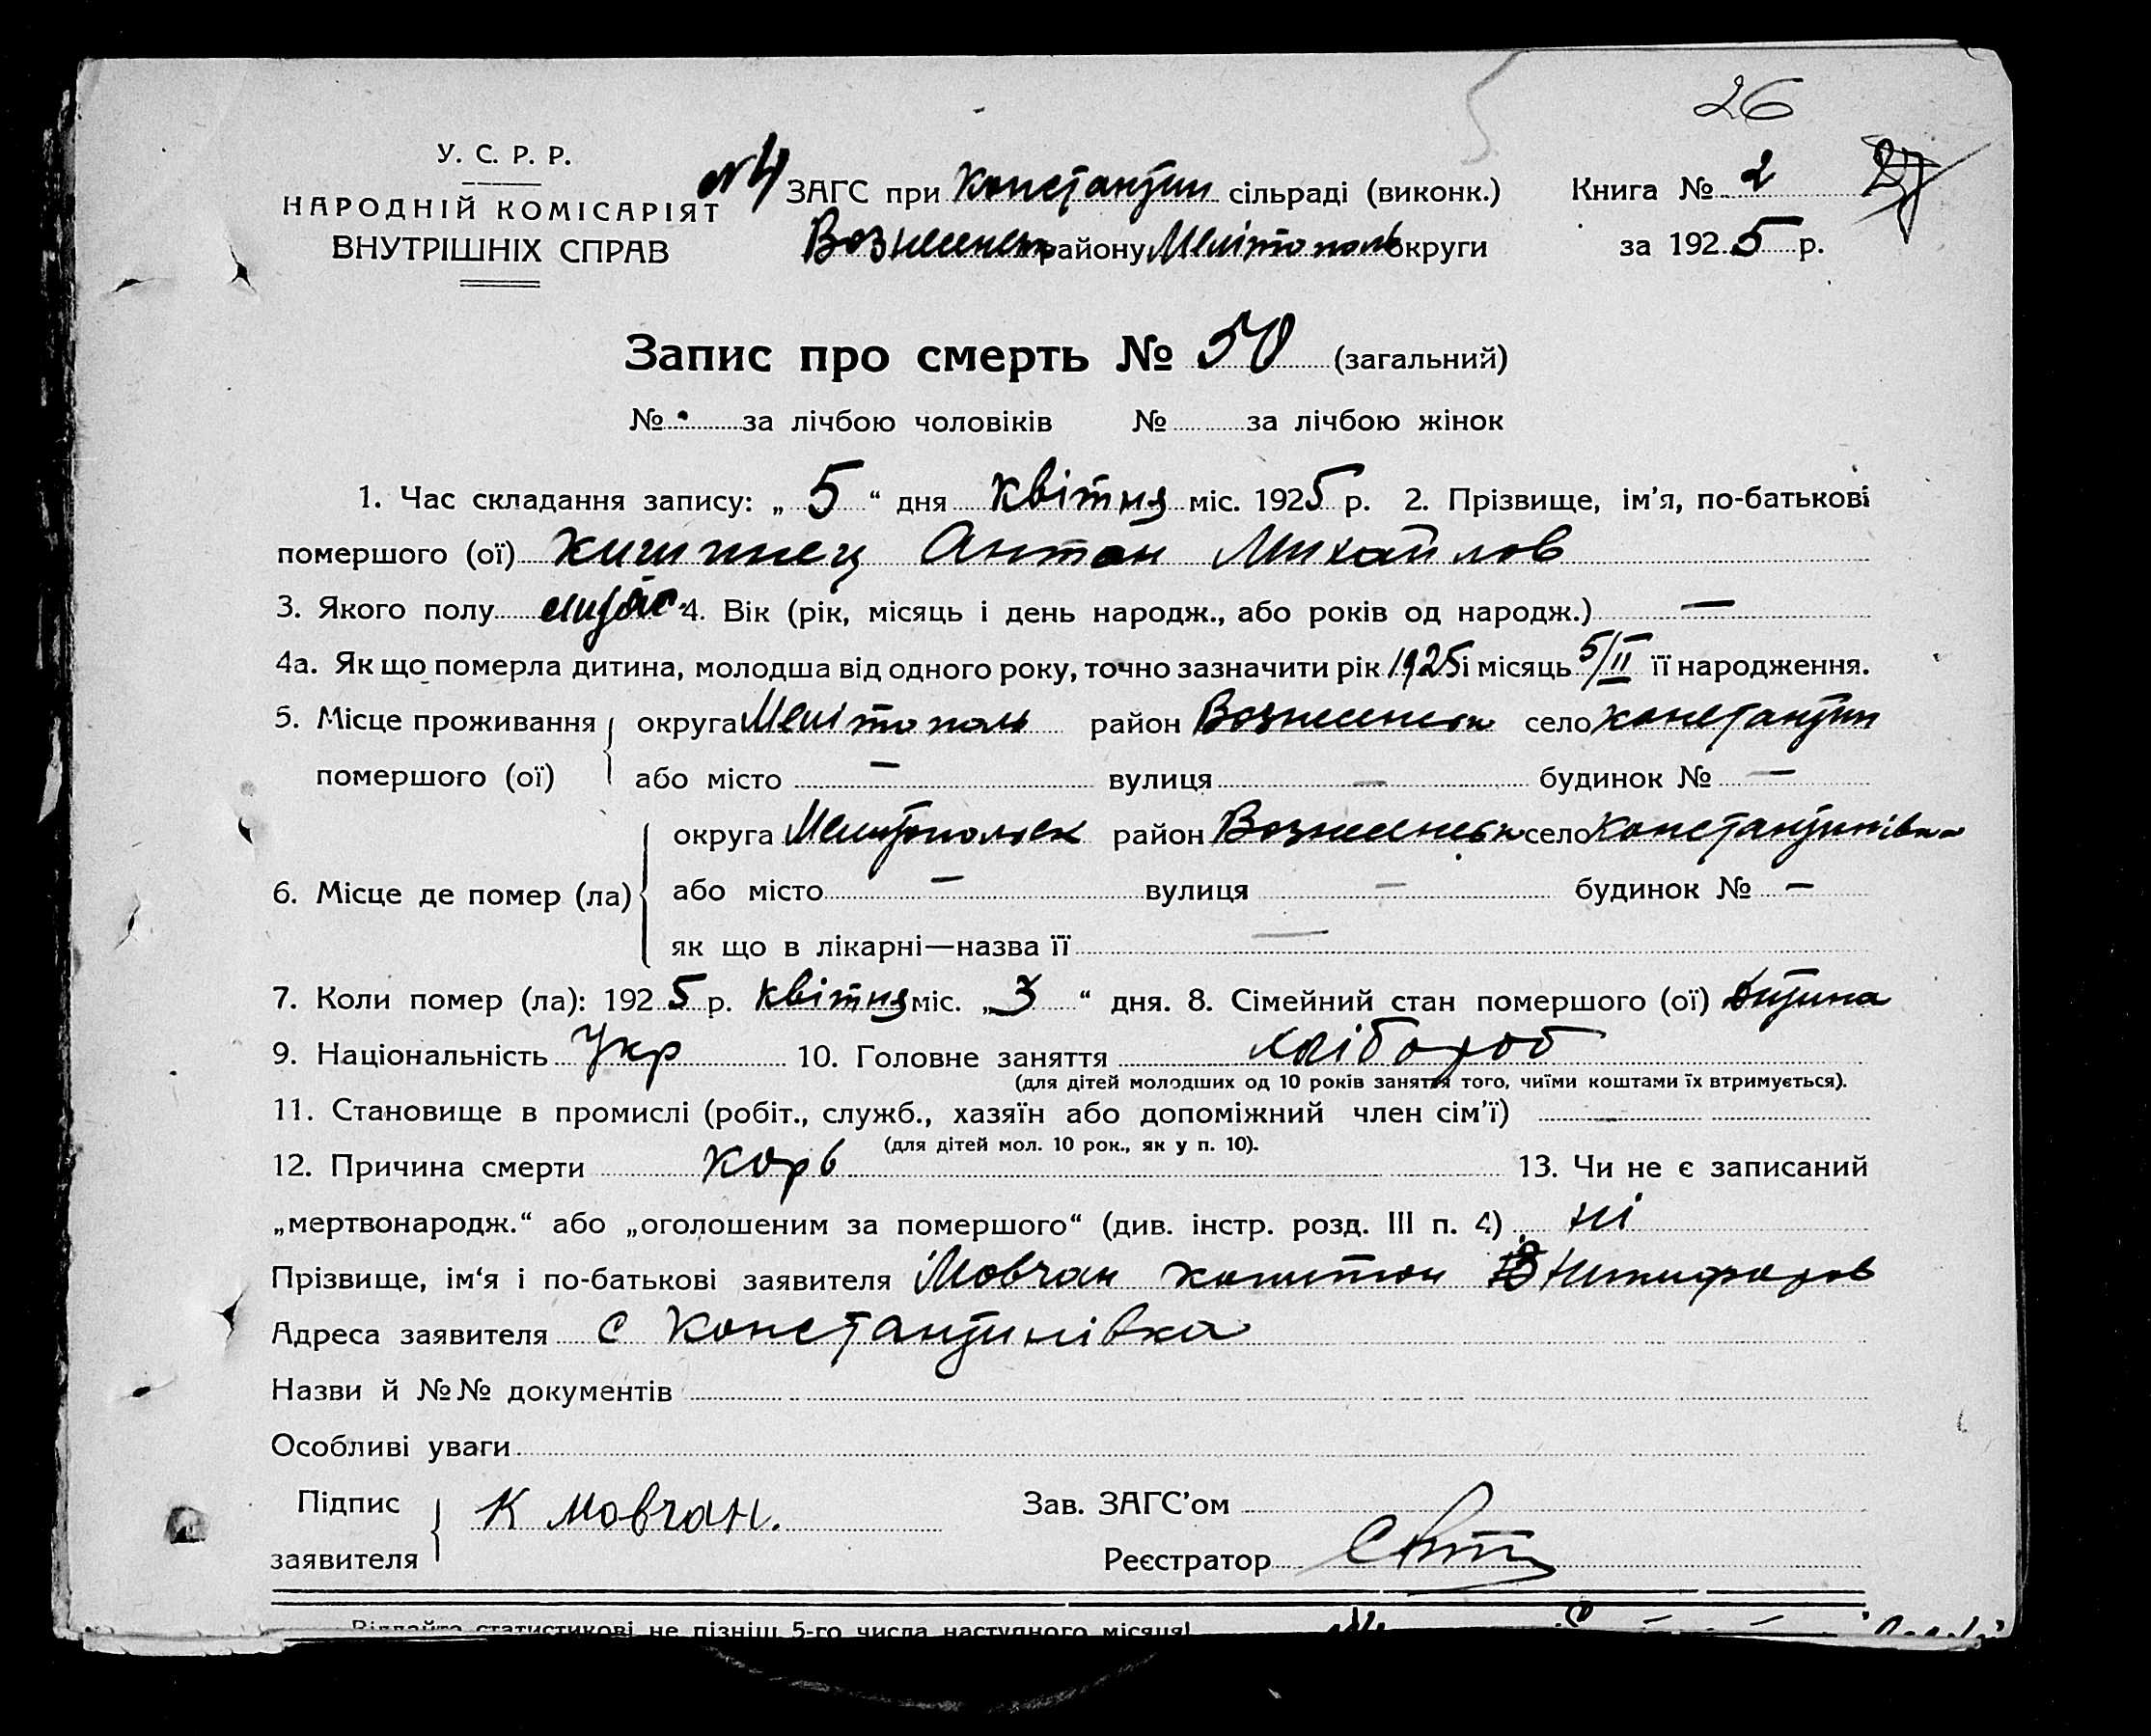 26
У. С. Р. Р.
НАРОДНІЙ КОМІСАРІЯТ
ВНУТРІШНІХ СПРАВ
№ 4 ЗАГС при Константин сільраді (виконк.) Книга № 2 27
Вознесенськ району Мелітополь округи за 1925 р.
Запис про смерть № 50 (загальний)
№ за лічбою чоловіків № за лічбою жінок
1. Час складання запису: „ 5 “ дня квітня міс. 1925 р. 2. Прізвище, ім’я, по-батькові
помершого (ої) Антон Михайлов
3. Якого полу 4. Вік (рік, місяць і день народж., або років од народж.) —
4а. Як що померла дитина, молодша від одного року, точно зазначити рік 1925 і місяць 5/II її народження.
5. Місце проживання округа Мелітополь район Вознесенськ село Константин
помершого (ої) або місто — вулиця — будинок № —
округа Мелитопольск район Вознесенськ село Константинівка
6. Місце де помер (ла) або місто — вулиця — будинок № —
як що в лікарні—назва її —
7. Коли помер (ла): 1925 р. квітня міс. „ 3 “ дня. 8. Сімейний стан помершого (ої) дитина
9. Національність Укр 10. Головне заняття хлібороб
(для дітей молодших од 10 років заняття того, чиїми коштами їх втримується).
11. Становище в промислі (робіт., служб., хазяїн або допоміжний член сім’ї) —
(для дітей мол. 10 рок., як у п. 10).
12. Причина смерти корь 13. Чи не є записаний
„мертвонародж.“ або „оголошеним за помершого“ (див. інстр. розд. III п. 4) ні
Прізвище, ім‘я і по-батькові заявителя Мовчан Капитон Никифоров
Адреса заявителя с Константинівка
Назви й №№ документів
Особливі уваги
Підпис К Мовчан. Зав. ЗАГС’ом
заявителя Реєстратор
Віддайте статистикові не пізніш 5-го числа наступного місяця!